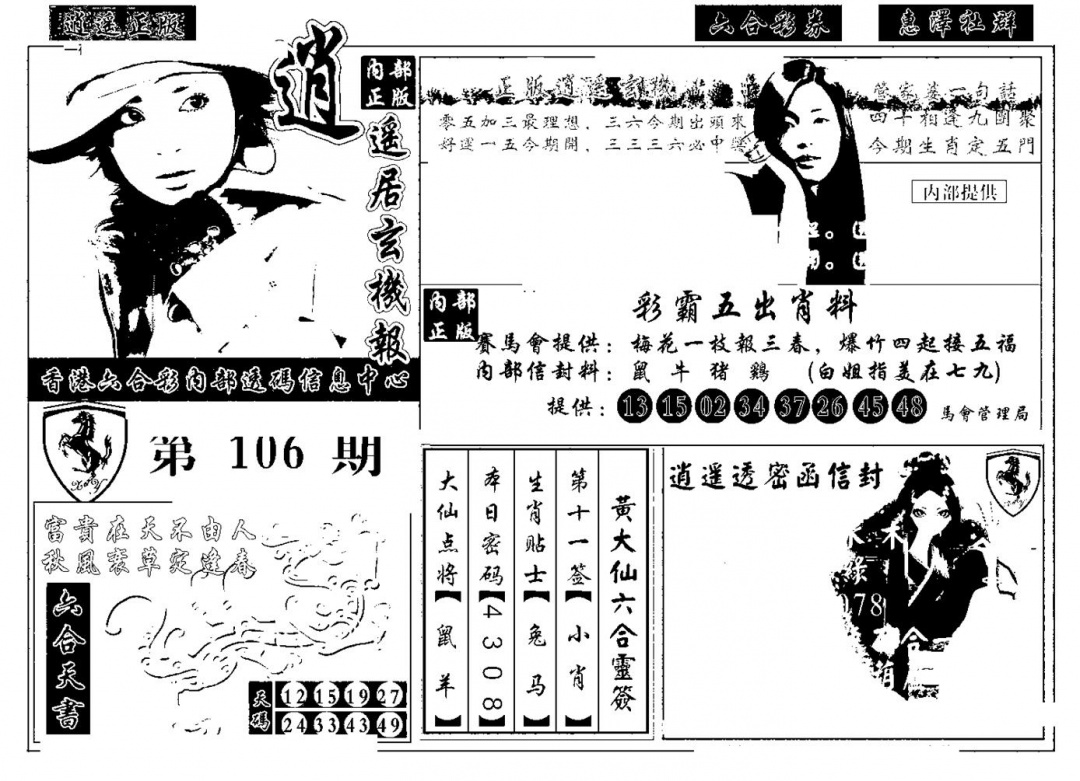 逍遥正版
六合彩券
惠澤社群
逍遥居玄機報
内部
正版
香港六合彩内部透碼信息中心
第 106 期
正版逍遥玄機
零五加三最理想，三六今期出頭來
好運一五今期開，三三三六必中獎
管家婆一句話
四十相逢九團聚
今期生肖定五門
内部提供
内部
正版
彩霸五出肖料
賽馬會提供：梅花一枝報三春，爆竹四起接五福
内部信封料：鼠 牛 猪 鷄 (白姐指美在七九)
提供：13 15 02 34 37 26 45 48 馬會管理局
富貴在天不由人
秋風衰草定逢春
六合天書
天碼
12 15 19 27
24 33 43 49
黃大仙六合靈簽
第十一签【小肖】
生肖贴士【兔马】
本日密码【4308】
大仙点将【鼠羊】
逍遥透密函信封
078
合